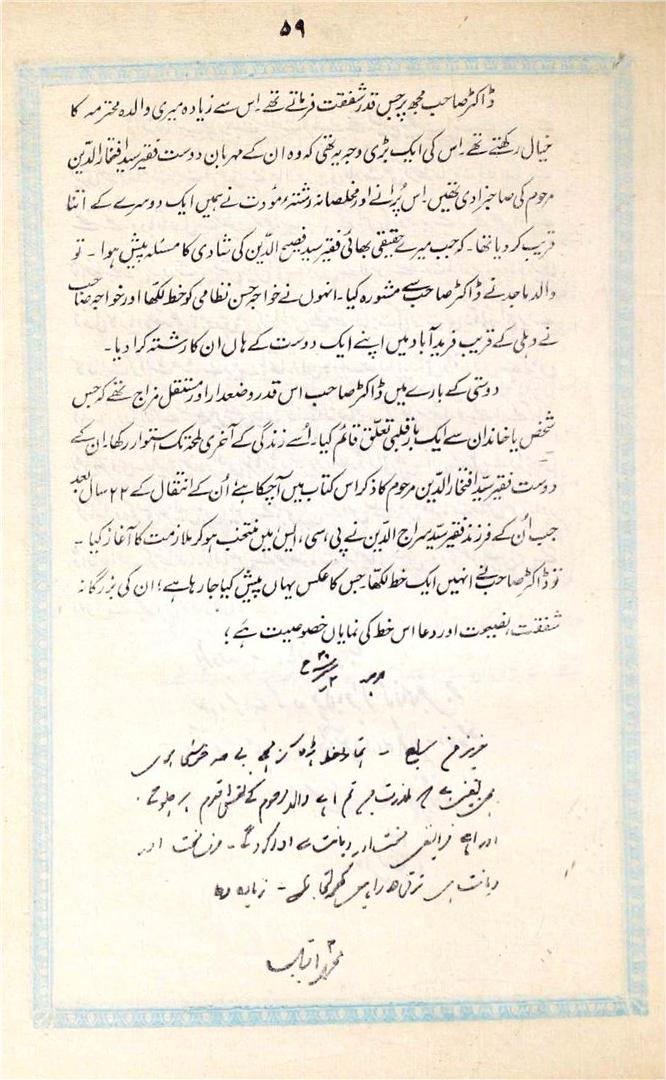 ۵۹
ڈاکٹر صاحب مجھ پر جس قدر شفقت فرماتے تھے۔ اس سے زیادہ میری والدہ محترمہ کا
خیال رکھتے تھے۔ اس کی ایک بڑی وجہ یہ تھی کہ وہ ان کے مہربان دوست فقیر سید افتخار الدّین
مرحوم کی صاحبزادی تھیں۔ اس پُرانے اور مخلصانہ رشتۂ مؤدت نے ہمیں ایک دوسرے کے اتنا
قریب کر دیا تھا۔ کہ جب میرے حقیقی بھائی فقیر سید فصیح الدّین کی شادی کا مسئلہ پیش ہوا ۔ تو
والد ماجد نے ڈاکٹر صاحب سے مشورہ کیا۔ انہوں نے خواجہ حسن نظامی کو خط لکھا اور خواجہ صاحب
نے دہلی کے قریب فرید آباد میں اپنے ایک دوست کے ہاں ان کا رشتہ کرا دیا۔
دوستی کے بارے میں ڈاکٹر صاحب اس قدر وضعدار اور مستقل مزاج تھے کہ جس
شخص یا خاندان سے ایک بار قلبی تعلّق قائم کیا۔ اُسے زندگی کے آخری لمحہ تک استوار رکھا۔ ان کے
دوست فقیر سیّد افتخار الدّین مرحوم کا ذکر اس کتاب میں آچکا ہے اُن کے انتقال کے ۲۲ سال بعد
جب اُن کے فرزند فقیر سیّد سراج الدّین نے پی، سی، ایس میں منتخب ہو کر ملازمت کا آغاز کیا ۔
تو ڈاکٹر صاحب نے انہیں ایک خط لکھا۔ جس کا عکس یہاں پیش کیا جا رہا ہے؛ ان کی بزرگانہ
شفقت، نصیحت اور دعا اس خط کی نمایاں خصوصیت ہے؛
عزیز من سراج ۔ تمہارا خط پڑھ کر مجھے بے حد خوشی ہوئی
مجھے یقین ہے کہ ملازمت میں تم اپنے والد مرحوم کے نقش قدم پر چلو گے
اور اپنے فرائض محنت اور دیانت سے ادا کرو گے ۔ صرف محنت اور
دیانت ہی ترقی کا راز ہیں ۔ زیادہ دعا
محمد اقبال